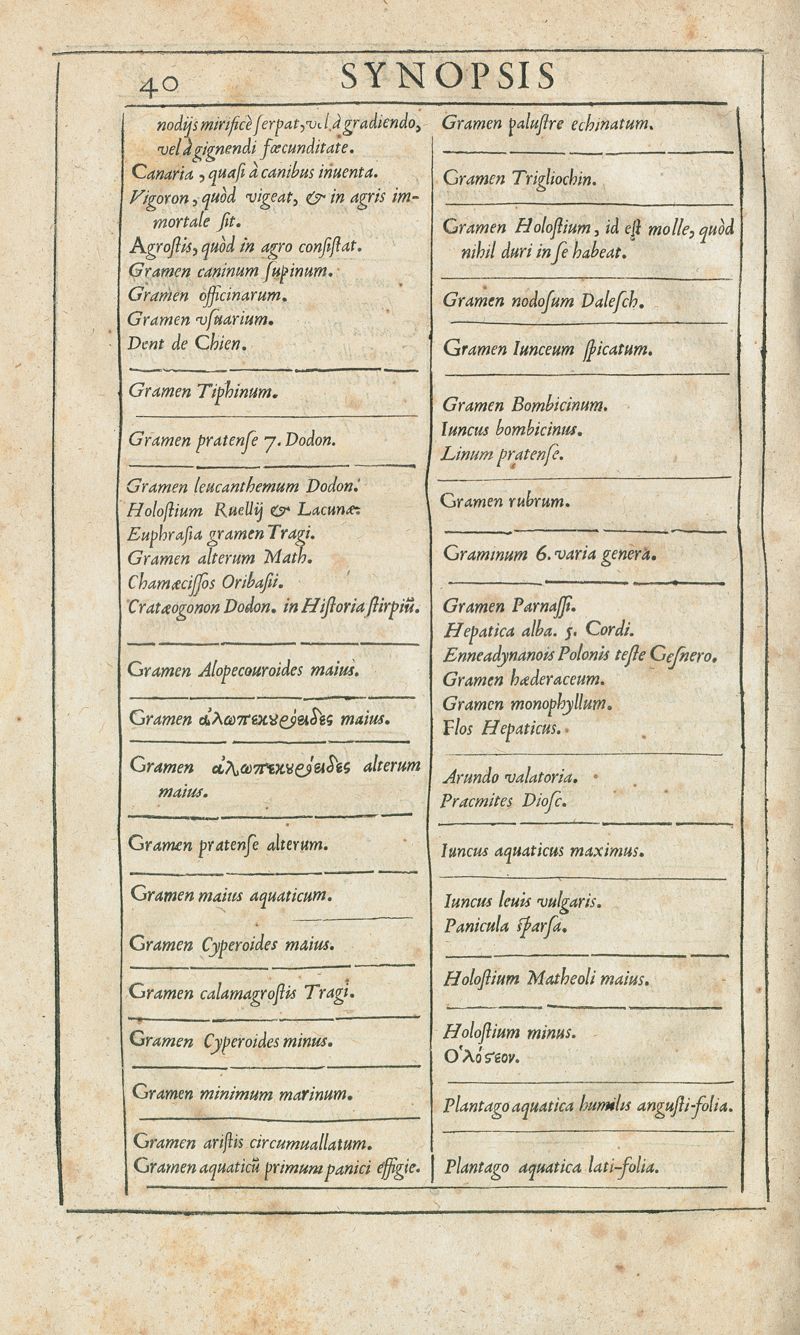 40
SYNOPSIS
nodijs mirificè ſerpat, vel à gradiendo,
vel à gignendi fœcunditate.
Canaria, quaſi à canibus inuenta.
Vigoron, quòd vigeat, & in agris im-
mortale ſit.
Agroſtis, quòd in agro conſiſtat.
Gramen caninum ſupinum.
Gramen officinarum.
Gramen vſuarium.
Dent de Chien.
Gramen Tiphinum.
Gramen pratenſe 7. Dodon.
Gramen leucanthemum Dodon.
Holoſtium Ruellij & Lacunæ.
Euphraſia gramen Tragi.
Gramen alterum Math.
Chamæciſſos Oribaſii.
Cratæogonon Dodon. in Hiſtoria ſtirpiũ.
Gramen Alopecouroides maius.
Gramen ἀλωπεκȣρόειδες maius.
Gramen ἀλωπεκȣρόειδες alterum
maius.
Gramen pratenſe alterum.
Gramen maius aquaticum.
Gramen Cyperoides maius.
Gramen calamagroſtis Tragi.
Gramen Cyperoides minus.
Gramen minimum marinum.
Gramen ariſtis circumuallatum.
Gramen aquaticũ primum panici effigie.
Gramen paluſtre echinatum.
Gramen Trigliochin.
Gramen Holoſtium, id eſt molle, quòd
nihil duri in ſe habeat.
Gramen nodoſum Daleſch.
Gramen Iunceum ſpicatum.
Gramen Bombicinum.
Iuncus bombicinus.
Linum pratenſe.
Gramen rubrum.
Graminum 6. varia genera.
Gramen Parnaſſi.
Hepatica alba. 5. Cordi.
Enneadynanois Polonis teſte Geſnero.
Gramen hæderaceum.
Gramen monophyllum.
Flos Hepaticus.
Arundo valatoria.
Pracmites Dioſc.
Iuncus aquaticus maximus.
Iuncus leuis vulgaris.
Panicula ſparſa.
Holoſtium Matheoli maius.
Holoſtium minus.
Ὁλόϛεον.
Plantago aquatica humilis anguſti-folia.
Plantago aquatica lati-folia.